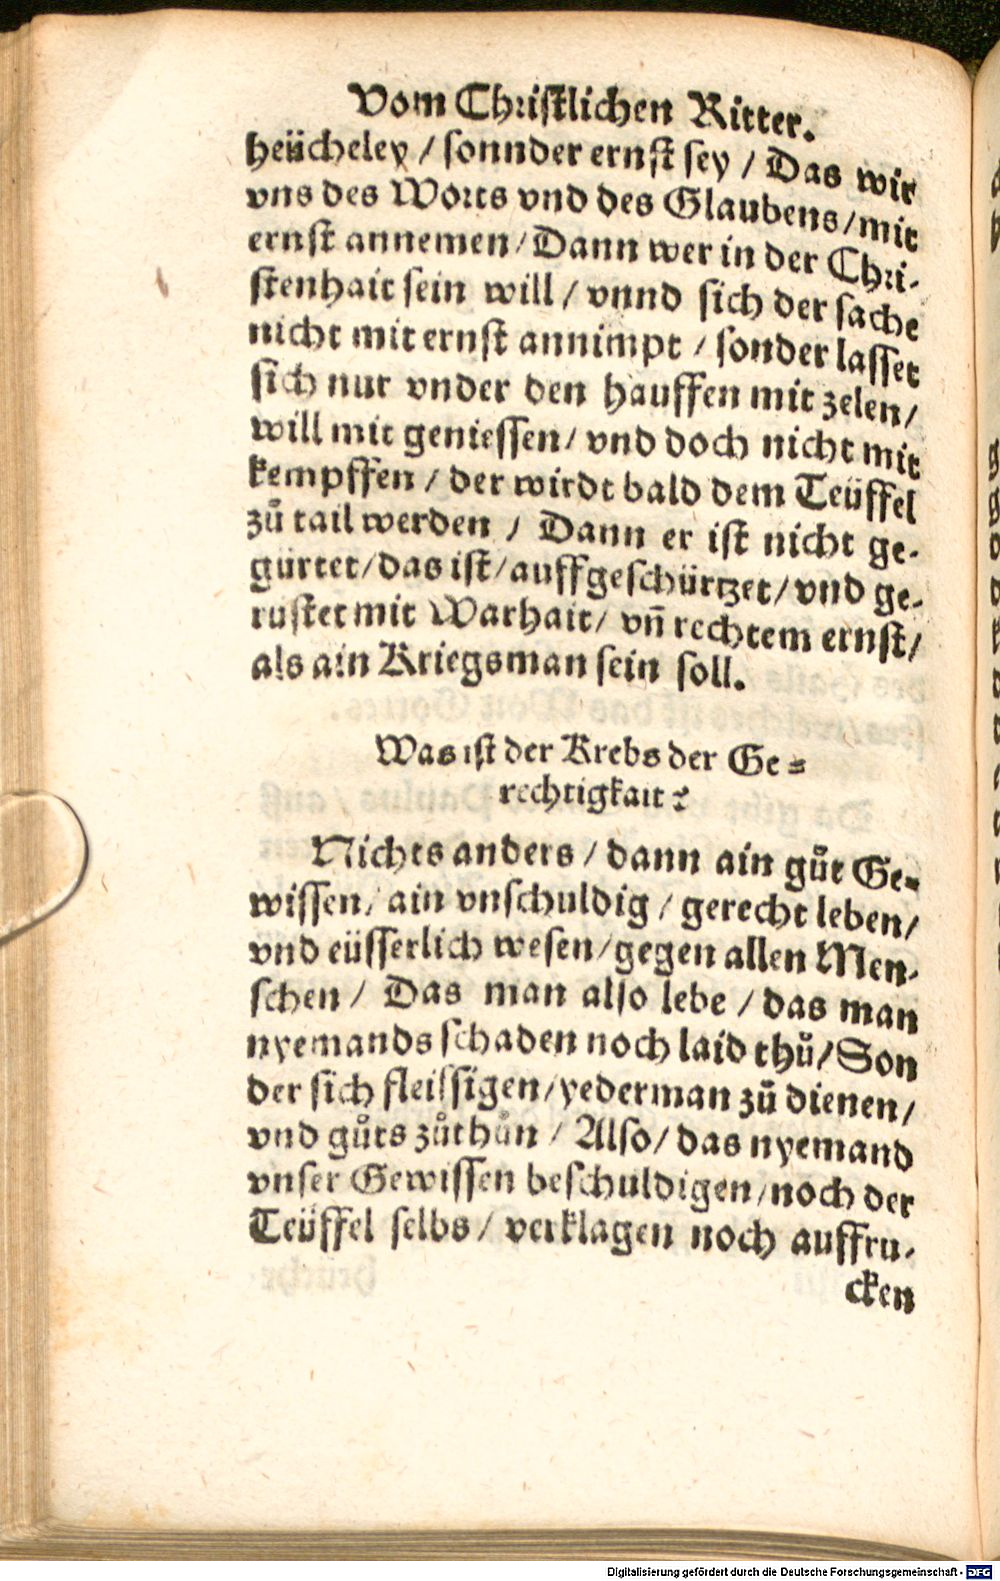 Vom Christlichen Ritter.
heücheley / sonnder ernst sey / Das wir
vns des Worts vnd des Glaubens / mit
ernst annemen / Dann wer in der Chri-
stenhait sein will / vnnd sich der sache
nicht mit ernst annimpt / sonder lasset
sich nur vnder den hauffen mit zelen /
will mit geniessen / vnd doch nicht mit
kempffen / der wirdt bald dem Teüffel
zů tail werden / Dann er ist nicht ge-
gürtet / das ist / auffgeschürtzet / vnd ge-
rüstet mit Warhait / vñ rechtem ernst /
als ain Kriegsman sein soll.
Was ist der Krebs der Ge=
rechtigkait?
Nichts anders / dann ain gůt Ge-
wissen / ain vnschuldig / gerecht leben /
vnd eüsserlich wesen / gegen allen Men-
schen / Das man also lebe / das man
nyemands schaden noch laid thů / Son
der sich fleissigen / yederman zů dienen /
vnd gůts zůthůn / Also / das nyemand
vnser Gewissen beschuldigen / noch der
Teüffel selbs / verklagen noch auffru-
cken
Digitalisierung gefördert durch die Deutsche Forschungsgemeinschaft - DFG